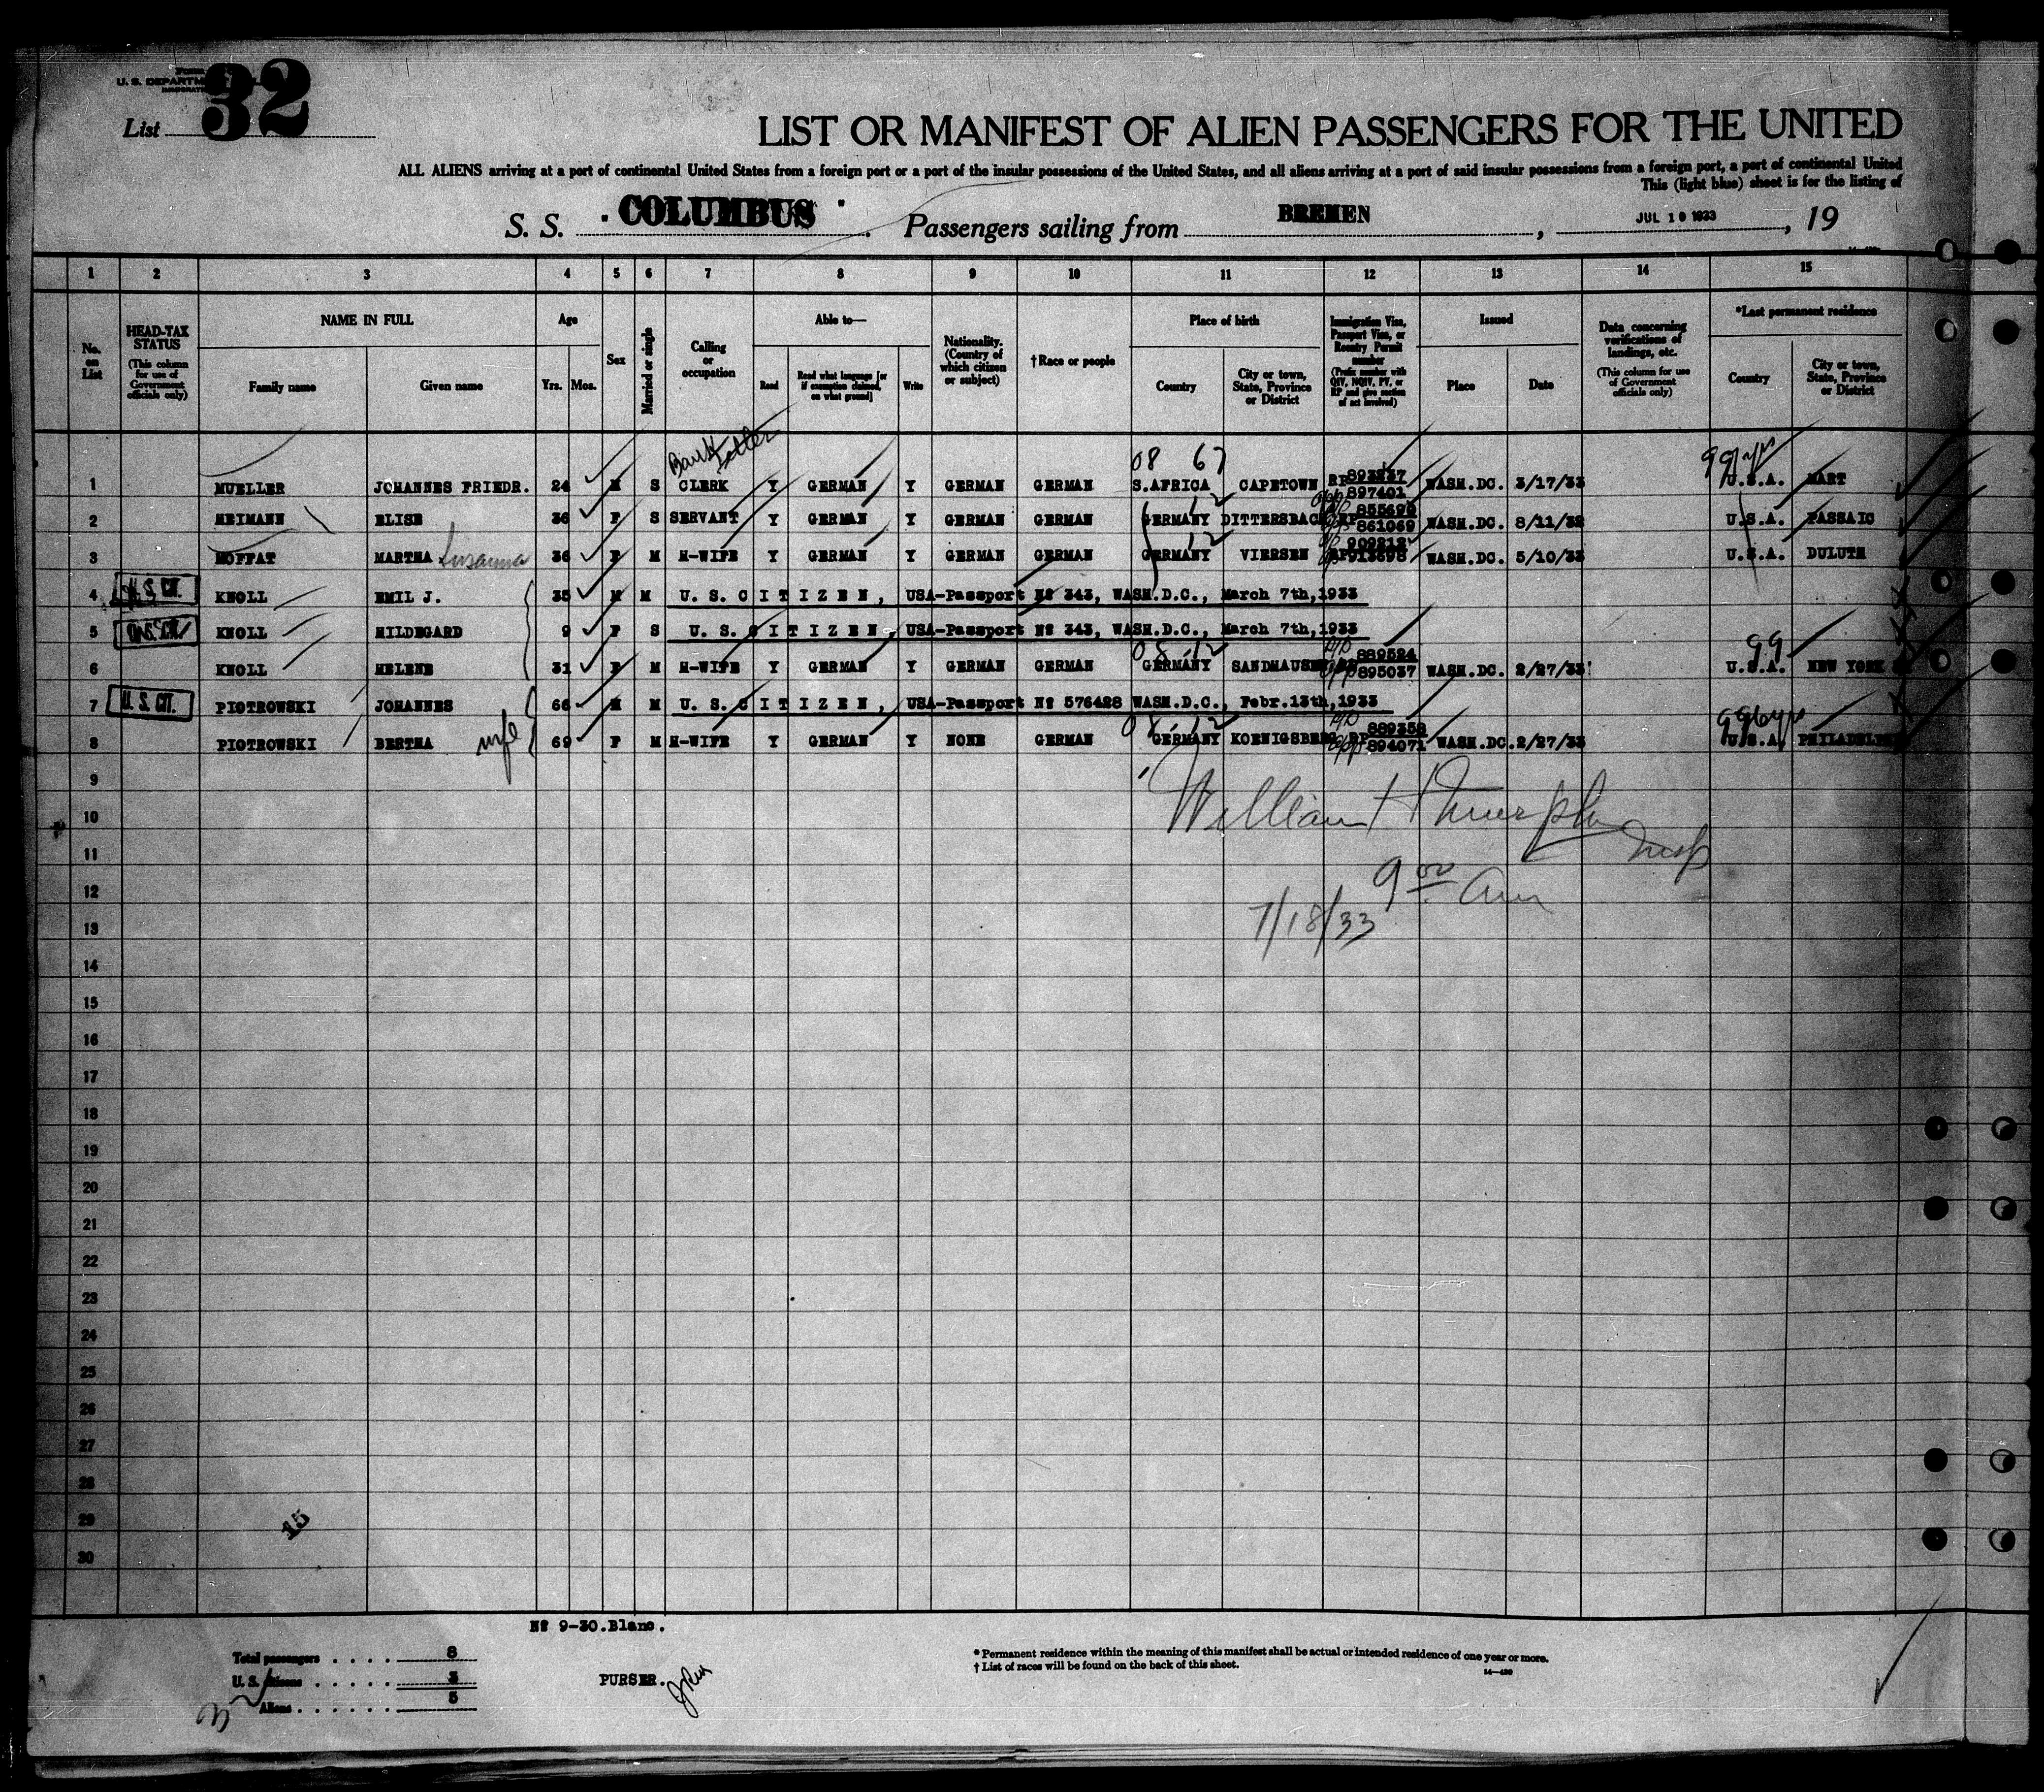 Form
U. S. DEPARTM
List 32
LIST OR MANIFEST OF ALIEN PASSENGERS FOR THE UNITED
ALL ALIENS arriving at a port of continental United States from a foreign port or a port of the insular possessions of the United States, and all aliens arriving at a port of said insular possessions from a foreign port, a port of continental United
This (light blue) sheet is for the listing of
S. S. "COLUMBUS" Passengers sailing from BREMEN, JUL 10 1933, 19
1 2 3 4 5 6 7 8 9 10 11 12 13 14 15
No. on List
HEAD-TAX STATUS (This column for use of Government officials only)
NAME IN FULL
Family name Given name
Age
Yrs. Mos.
Sex
Married or single
Calling or occupation
Able to—
Read Read what language [or if exemption claimed, on what ground] Write
Nationality. (Country of which citizen or subject)
† Race or people
Place of birth
Country City or town, State, Province or District
Immigration Visa, Passport Visa, or Reentry Permit number (Prefix number with QIV, NQIV, PV, or RP and give section of act involved)
Issued
Place Date
Data concerning verifications of landings, etc. (This column for use of Government officials only)
*Last permanent residence
Country City or town, State, Province or District
Bank Teller 08 67 99
1 MUELLER JOHANNES FRIEDR. 24 M S CLERK Y GERMAN Y GERMAN GERMAN S.AFRICA CAPETOWN RP 897401 WASH.DC. 3/17/33 U.S.A. MART
2 HEIMANN ELISE 36 F S SERVANT Y GERMAN Y GERMAN GERMAN GERMANY DITTERSBACH 861069 WASH.DC. 8/11/32 U.S.A. PASSAIC
3 MOFFAT MARTHA Susanna 36 F M H-WIFE Y GERMAN Y GERMAN GERMAN GERMANY VIERSEN 909212 RP 913698 WASH.DC. 5/10/33 U.S.A. DULUTH
U. S. CIT. 4 KNOLL EMIL J. 35 M M U. S. C I T I Z E N, USA-Passport Nº 343, WASH.D.C., March 7th,1933
U. S. CIT. 5 KNOLL HILDEGARD 9 F S U. S. C I T I Z E N, USA-Passport Nº 343, WASH.D.C., March 7th,1933
08-12 99
6 KNOLL HELENE 31 F M H-WIFE Y GERMAN Y GERMAN GERMAN GERMANY SANDHAUSEN 889524 895037 WASH.DC. 2/27/33 U.S.A. NEW YORK
U. S. CIT. 7 PIOTROWSKI JOHANNES 66 M M U. S. C I T I Z E N, USA-Passport Nº 576428 WASH.D.C., Febr.13th,1933
08-12 99
8 PIOTROWSKI BERTHA wife 69 F M H-WIFE Y GERMAN Y NONE GERMAN GERMANY KOENIGSBERG RP 889358 894071 WASH.DC. 2/27/33 U.S.A. PHILADELPH
9
William H Murphy
10
Insp
11
12
9 00 am
13
7/18/33
14
15
16
17
18
19
20
21
22
23
24
25
26
27
28
29
15
30
Nº 9-30.Blanc.
Total passengers . . . . 8
U. S. citizens . . . . . 3
Aliens . . . . . . 5
PURSER.
* Permanent residence within the meaning of this manifest shall be actual or intended residence of one year or more.
† List of races will be found on the back of this sheet.
14—430